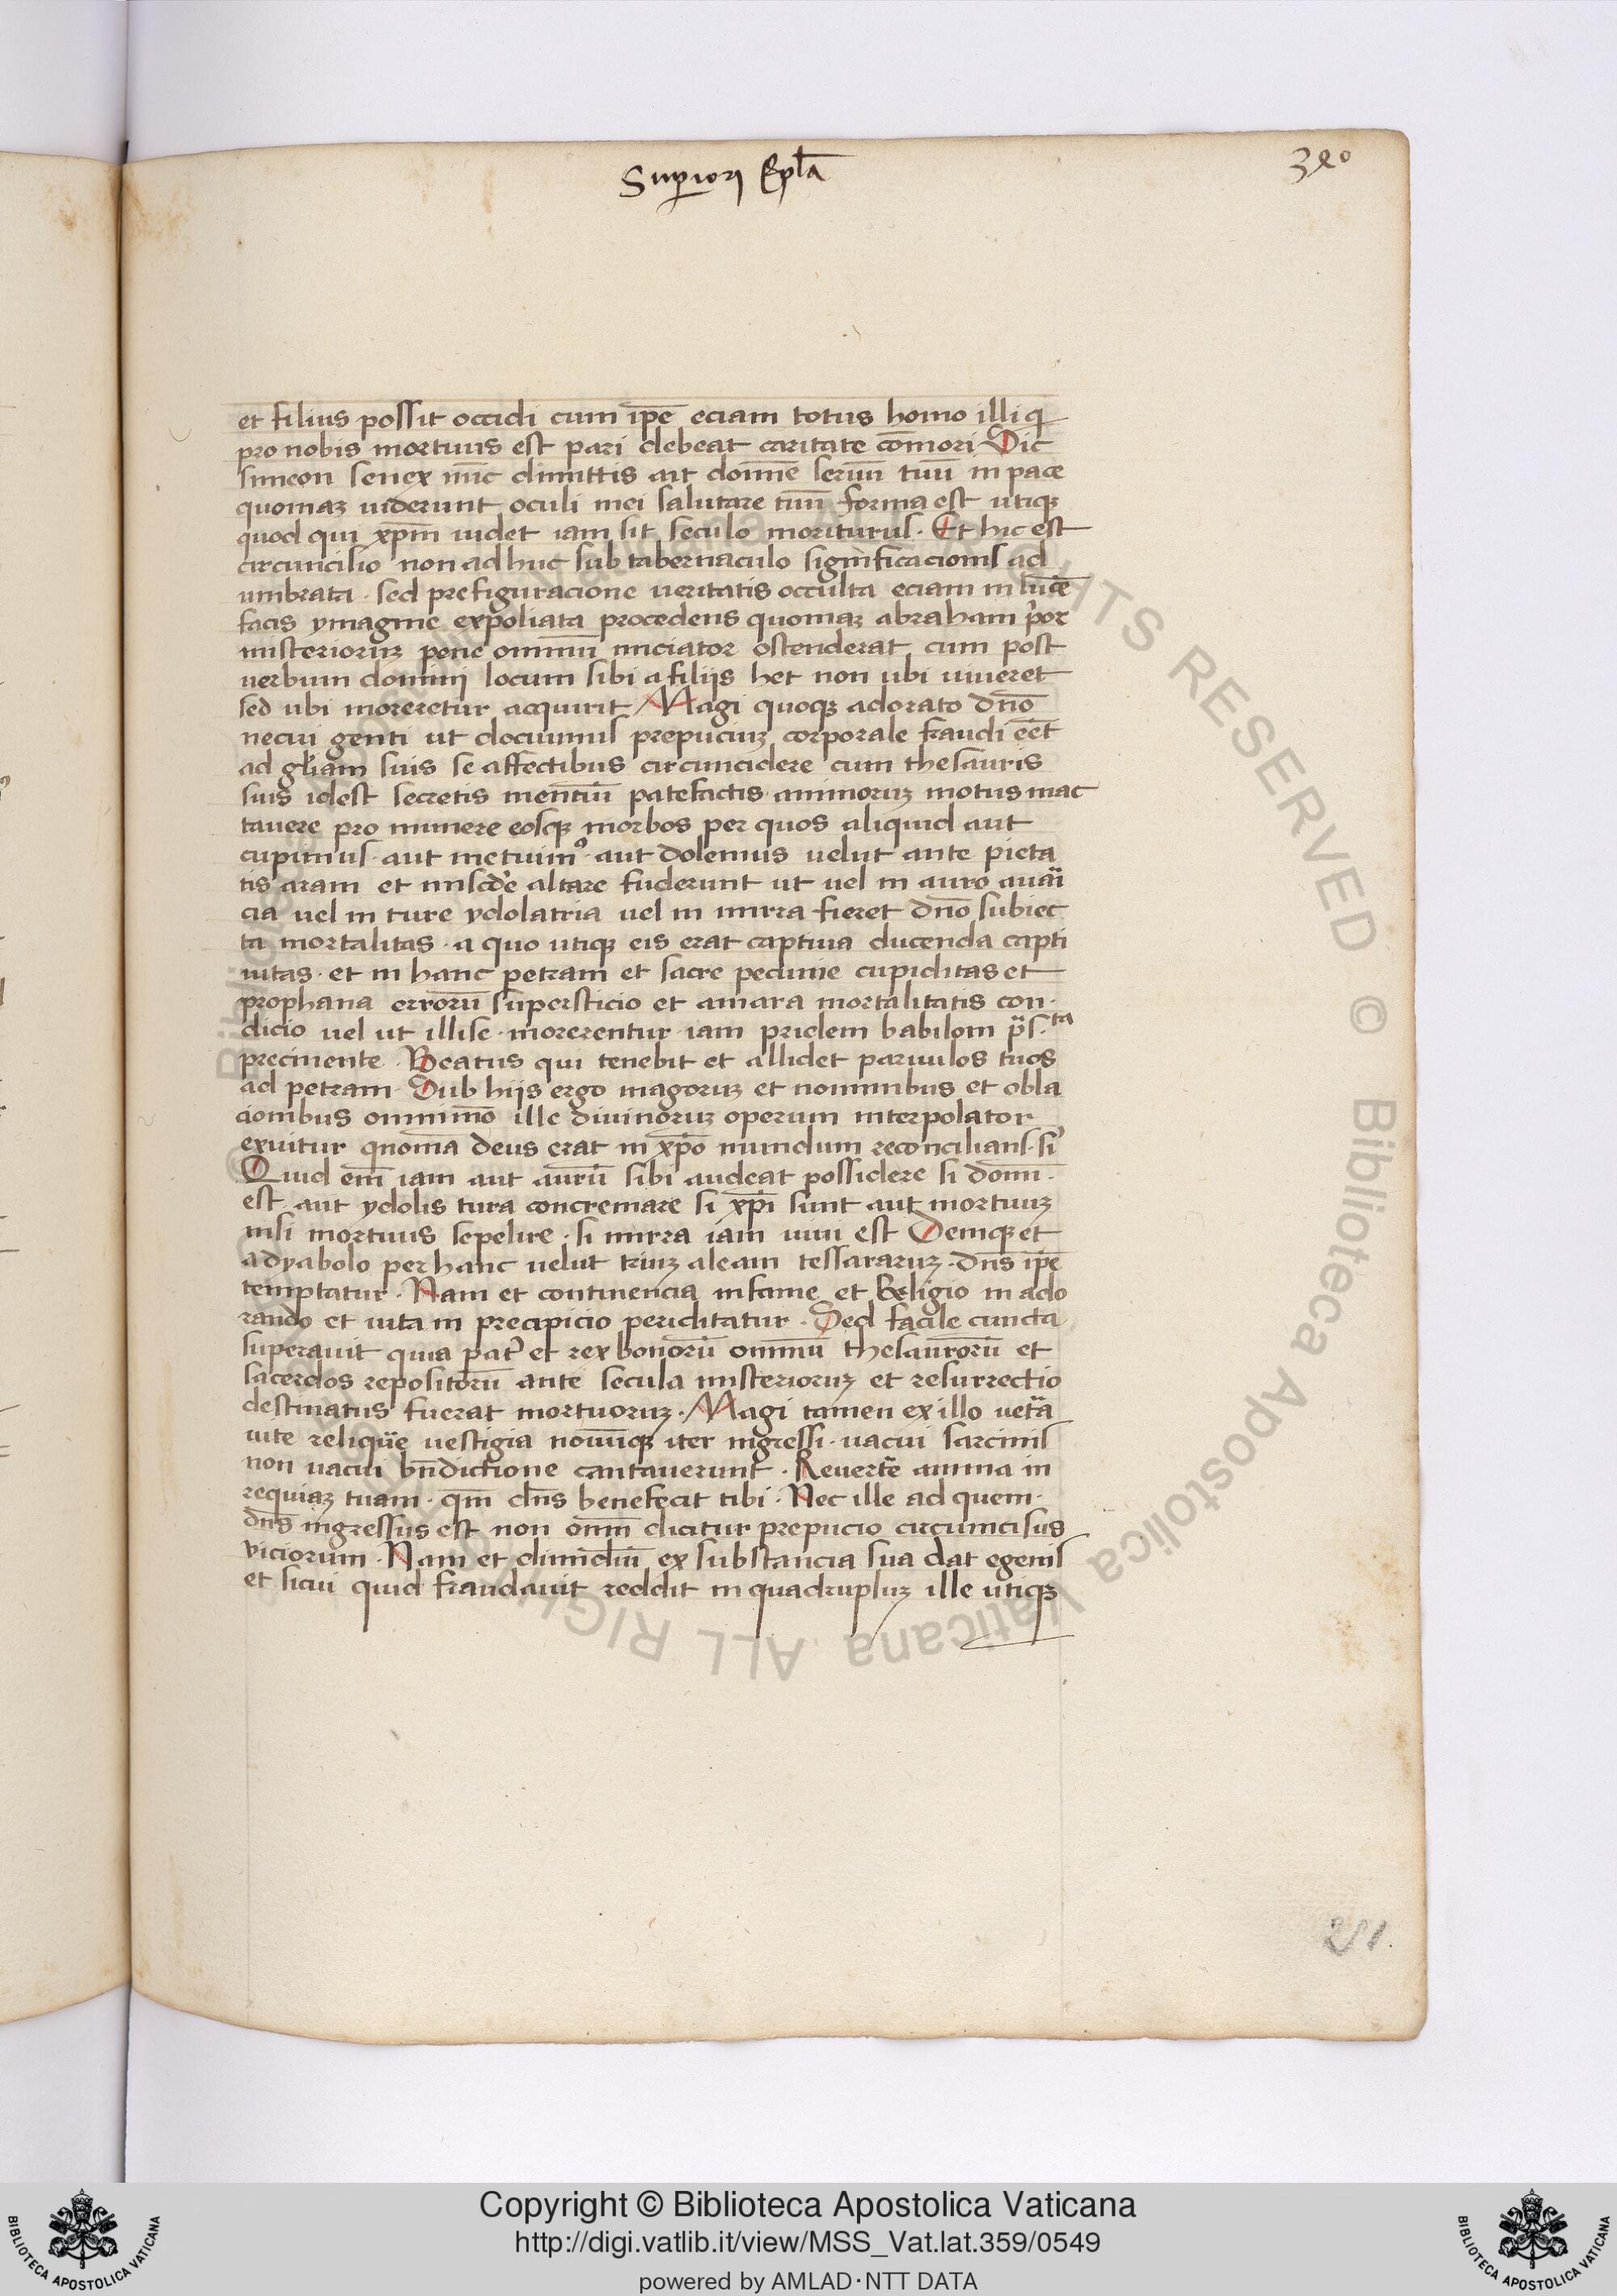 Sup̲iori Ep̅la
320
et filius possit occidi cum ip̅e eciam totus homo illi q̵
pro nobis mortuus est pari debeat caritate co̅mori Dic
simeon senex nu̅c dimittis ait domine̅ seruu̅ tuu̅ in pace
quoniaꝫ uiderunt oculi mei salutare tuu̅ forma est utiqꝫ
quod qui xp̅m uidet iam sit seculo moriturus · Et hic est
circuncisio non adhuc sub tabernaculo significacionis ad
umbrata · sed prefiguracione ueritatis occulta eciam in luce̅
facis ymagine expoliata procedens quoniaꝫ abraham p̓or
misterioruꝫ pene omniu̅ inciator ostenderat cum post
uerbum domini locum sibi a filijs het non ubi uiueret
sed ubi moreretur acquirit Magi quoqꝫ adorato dn̅o
necui genti ut docuimus prepuciuꝫ corporale fraudi ee̅t
ad gl̅iam suis se affectibus circuncidere cum thesauris
suis idest secretis mentiu̅ patefactis animoruꝫ motus mac
tauere pro munere eosqꝫ morbos per quos aliquid aut
cupimus · aut metuimꝰ · aut dolemus uelut ante pieta
tis aram et mis̅cde altare fuderunt ut uel in auro auar̅i
cia uel in ture ydolatria uel in mirra fieret dn̅o subiec
ta mortalitas · a quo utiqꝫ eis erat captiua ducenda capti
uitas · et in hanc petram et sacre pecunie cupiditas et
prophana erroru̅ supersticio et amara mortalitatis con·
dicio uel ut illise · morerentur · iam pridem babiloni p̅s·ta
precinente · Beatus qui tenebit et allidet paruulos tuos
ad petram · Sub hijs ergo magoruꝫ et nominibus et obla
cionibus omnimo̅ ille diuinoruꝫ operum interpolator
exuitur qnoma̅ deus erat in xp̅o mundum reconcilians · si᾽
Quid em̅ iam aut auru̅ sibi audeat possidere si dom̅i·
est aut ydolis tura concremare si xp̅i sunt aut mortuuꝫ
nisi mortuus sepelire · si mirra iam uiui est Deniqꝫ et
a dyabolo per hanc uelut triuꝫ aleam tessararuꝫ · dn̅s ip̅e
temptatur · Nam et continencia in fame et Religio in ado
rando et uita in precipicio periclitatur · Sed facile cuncta
superauit quia pat᾽ et rex bonoru̅ omniu̅ thesauroru̅ et
sacerdos repositoru̅ ante secula misterioruꝫ et resurrectio
destinatus fuerat mortuoruꝫ · Magi tamen ex illo uet̅a
uite reliqu̅e uestigia nouu̅qꝫ iter ingressi · uacui sarcinis
non uacui bn̅dictione cantauerunt · Reuerte̅ anima in
requiaꝫ tuam · qm̅ dn̅s benefecit tibi · Nec ille ad quem·
dn̅s ingressus est non om̅i dicitur prepucio circumcisus
viciorum · Nam et dimidiu̅ ex substancia sua dat egenis
et sicui quid fraudauit reddit in quadrupluꝫ ille utiqꝫ
281.
Copyright © Biblioteca Apostolica Vaticana
http://digi.vatlib.it/view/MSS_Vat.lat.359/0549
powered by AMLAD·NTT DATA
BIBLIOTECA APOSTOLICA VATICANA
BIBLIOTECA APOSTOLICA VATICANA
© Biblioteca Apostolica Vaticana ALL RIGHTS RESERVED © Biblioteca Apostolica Vaticana ALL RIGHTS RESERVED